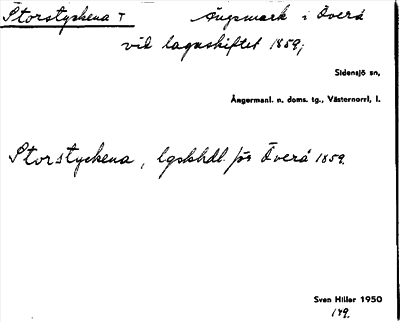 Storstyckena T Ängsmark i Överå
vid lagaskiftet 1859;
Sidensjö sn,
Ångermanl. n. doms. tg., Västernorrl. l.
Storstyckena, lgskhdl. för Överå 1859.
Sven Hiller 1950
149.